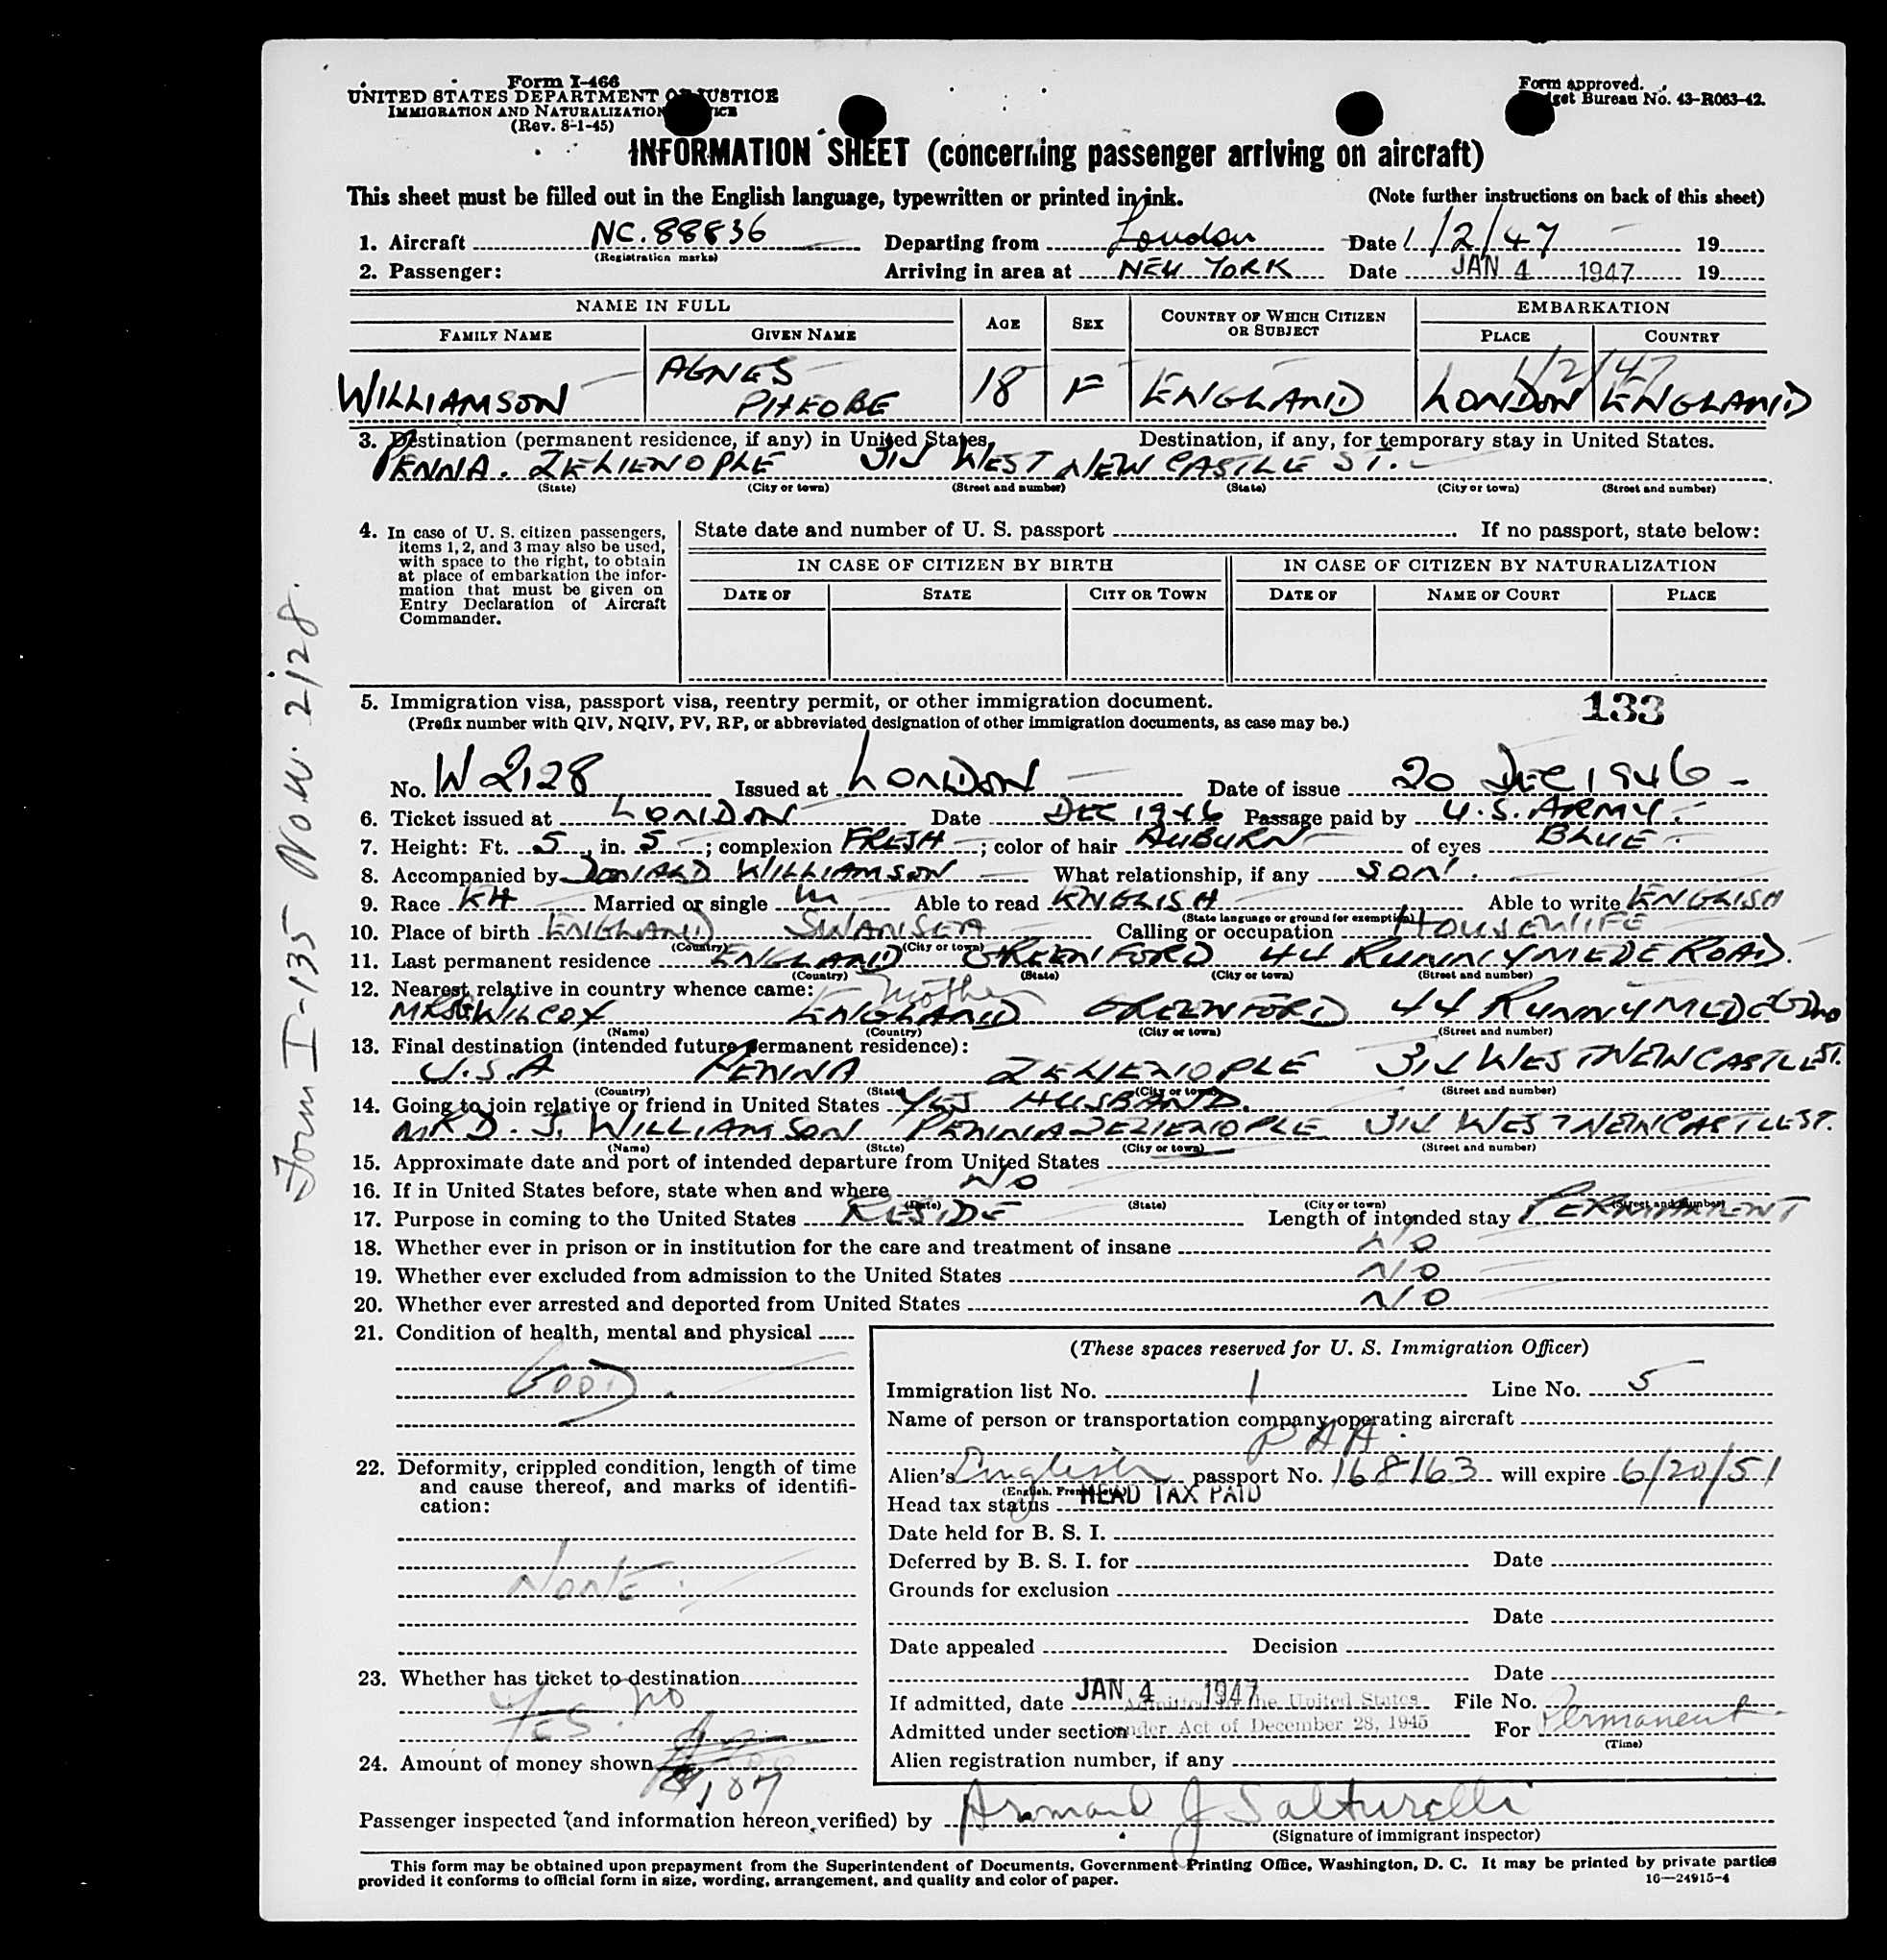 Form I-466
UNITED STATES DEPARTMENT OF JUSTICE
IMMIGRATION AND NATURALIZATION
(Rev. 8-1-45)
Form approved.
Budget Bureau No. 43-R063-42.
INFORMATION SHEET (concerning passenger arriving on aircraft)
This sheet must be filled out in the English language, typewritten or printed in ink. (Note further instructions on back of this sheet)
1. Aircraft NC.88836 Departing from London Date 1/2/47 19
(Registration marks)
2. Passenger: Arriving in area at NEW YORK Date JAN 4 1947 19
NAME IN FULL AGE SEX COUNTRY OF WHICH CITIZEN OR SUBJECT EMBARKATION
FAMILY NAME GIVEN NAME PLACE COUNTRY
1/2/47
WILLIAMSON AGNES PHEOBE 18 F ENGLAND LONDON ENGLAND
3. Destination (permanent residence, if any) in United States. Destination, if any, for temporary stay in United States.
PENNA. ZELIENOPLE WEST NEW CASTLE ST.
(State) (City or town) (Street and number) (State) (City or town) (Street and number)
4. In case of U. S. citizen passengers, items 1, 2, and 3 may also be used, with space to the right, to obtain at place of embarkation the information that must be given on Entry Declaration of Aircraft Commander.
State date and number of U. S. passport If no passport, state below:
IN CASE OF CITIZEN BY BIRTH IN CASE OF CITIZEN BY NATURALIZATION
DATE OF STATE CITY OR TOWN DATE OF NAME OF COURT PLACE
Form I-135 2128.
5. Immigration visa, passport visa, reentry permit, or other immigration document. 133
(Prefix number with QIV, NQIV, PV, RP, or abbreviated designation of other immigration documents, as case may be.)
No. W 2128 Issued at LONDON Date of issue 20 DEC 1946
6. Ticket issued at LONDON Date DEC 1946 Passage paid by U.S. ARMY.
7. Height: Ft. 5, in. 5; complexion FRESH; color of hair AUBURN of eyes BLUE
8. Accompanied by DONALD WILLIAMSON What relationship, if any SON.
9. Race Married or single M Able to read ENGLISH Able to write ENGLISH
(State language or ground for exemption)
10. Place of birth ENGLAND SWANSEA Calling or occupation HOUSEWIFE
(Country) (City or town)
11. Last permanent residence ENGLAND GREENFORD 44 RUNNYMEDE ROAD.
(Country) (State) (City or town) (Street and number)
12. Nearest relative in country whence came: Mother
MRS WILCOX ENGLAND GREENFORD 44 RUNNYMEDE
(Name) (Country) (City or town) (Street and number)
13. Final destination (intended future permanent residence):
U.S.A PENNA ZELIENOPLE WEST NEW CASTLE ST.
(Country) (State) (City or town) (Street and number)
14. Going to join relative or friend in United States YES HUSBAND.
MR D. J. WILLIAMSON PENNA ZELIENOPLE WEST NEW CASTLE ST.
(Name) (State) (City or town) (Street and number)
15. Approximate date and port of intended departure from United States
16. If in United States before, state when and where NO
(Date) (State) (City or town) (Street and number)
17. Purpose in coming to the United States RESIDE Length of intended stay PERMANENT
18. Whether ever in prison or in institution for the care and treatment of insane NO
19. Whether ever excluded from admission to the United States NO
20. Whether ever arrested and deported from United States NO
21. Condition of health, mental and physical
GOOD.
22. Deformity, crippled condition, length of time and cause thereof, and marks of identification:
NONE.
23. Whether has ticket to destination
YES. no
24. Amount of money shown
(These spaces reserved for U. S. Immigration Officer)
Immigration list No. 1 Line No. 5
Name of person or transportation company operating aircraft
PAA.
Alien's English passport No. 168163 will expire 6/20/51
(English, French, etc.)
Head tax status HEAD TAX PAID
Date held for B. S. I.
Deferred by B. S. I. for Date
Grounds for exclusion
Date
Date appealed Decision
Date
If admitted, date JAN 4 1947 Admitted to the United States File No.
Admitted under section under Act of December 28, 1945 For Permanent
(Time)
Alien registration number, if any
Passenger inspected (and information hereon verified) by Armand J Salturelli
(Signature of immigrant inspector)
This form may be obtained upon prepayment from the Superintendent of Documents, Government Printing Office, Washington, D. C. It may be printed by private parties
provided it conforms to official form in size, wording, arrangement, and quality and color of paper. 16—24915-4